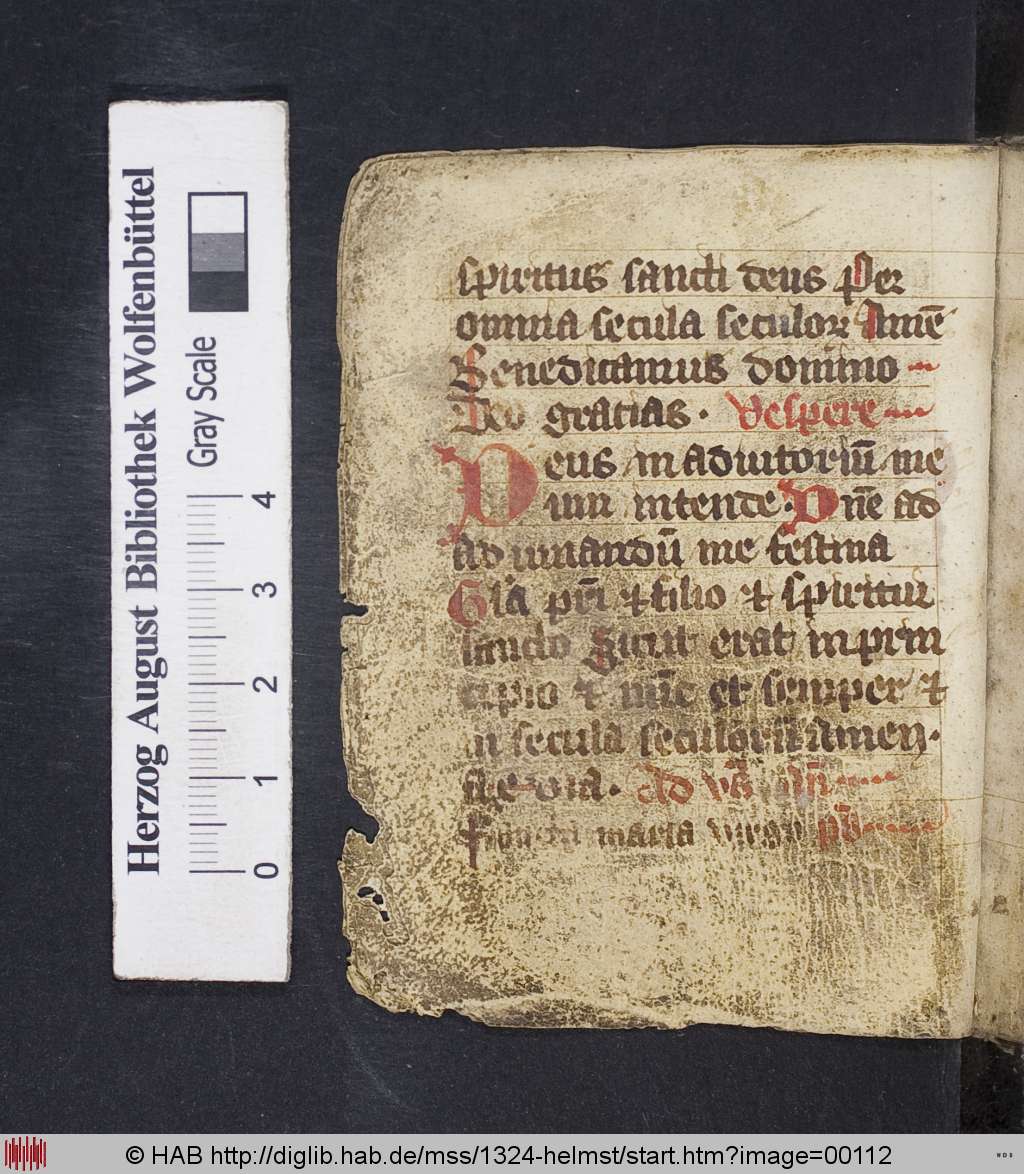 Herzog August Bibliothek Wolfenbüttel
Gray Scale
0 1 2 3 4
spiritus sancti deus Per
omnia secula seculor Amē
Benedicamus domino
Deo gracias. Vespere
Deus in adiutoriū me
um intende. Dn̄e ad
ad iuuandū me festina
Gl̄a pr̄i et filio et spiritui
sancto Sicut erat in prin
cipio et nūc et semper et
in secula seculorū amen.
maria virgo ps̄
© HAB http://diglib.hab.de/mss/1324-helmst/start.htm?image=00112